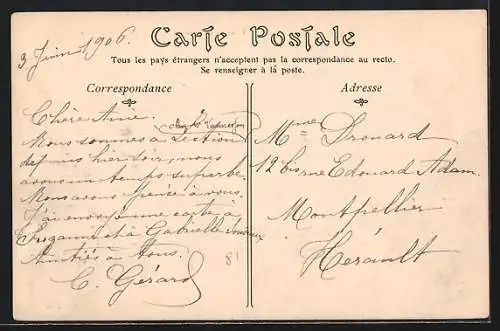 3 Juin 1906.
Carte Postale
Tous les pays étrangers n'acceptent pas la correspondance au recto.
Se renseigner à la poste.
Correspondance
Chère Amie.
Nous sommes à
depuis hier soir, nous
avons un temps superbe.
Nous avons pensé à vous.
J'ai envoyé une carte à
Suzanne et à Gabrielle
Amitiés à tous.
C. Gérard
81
Adresse
Mme Drouard
12 bis rue Edouard Adam.
Montpellier
Hérault